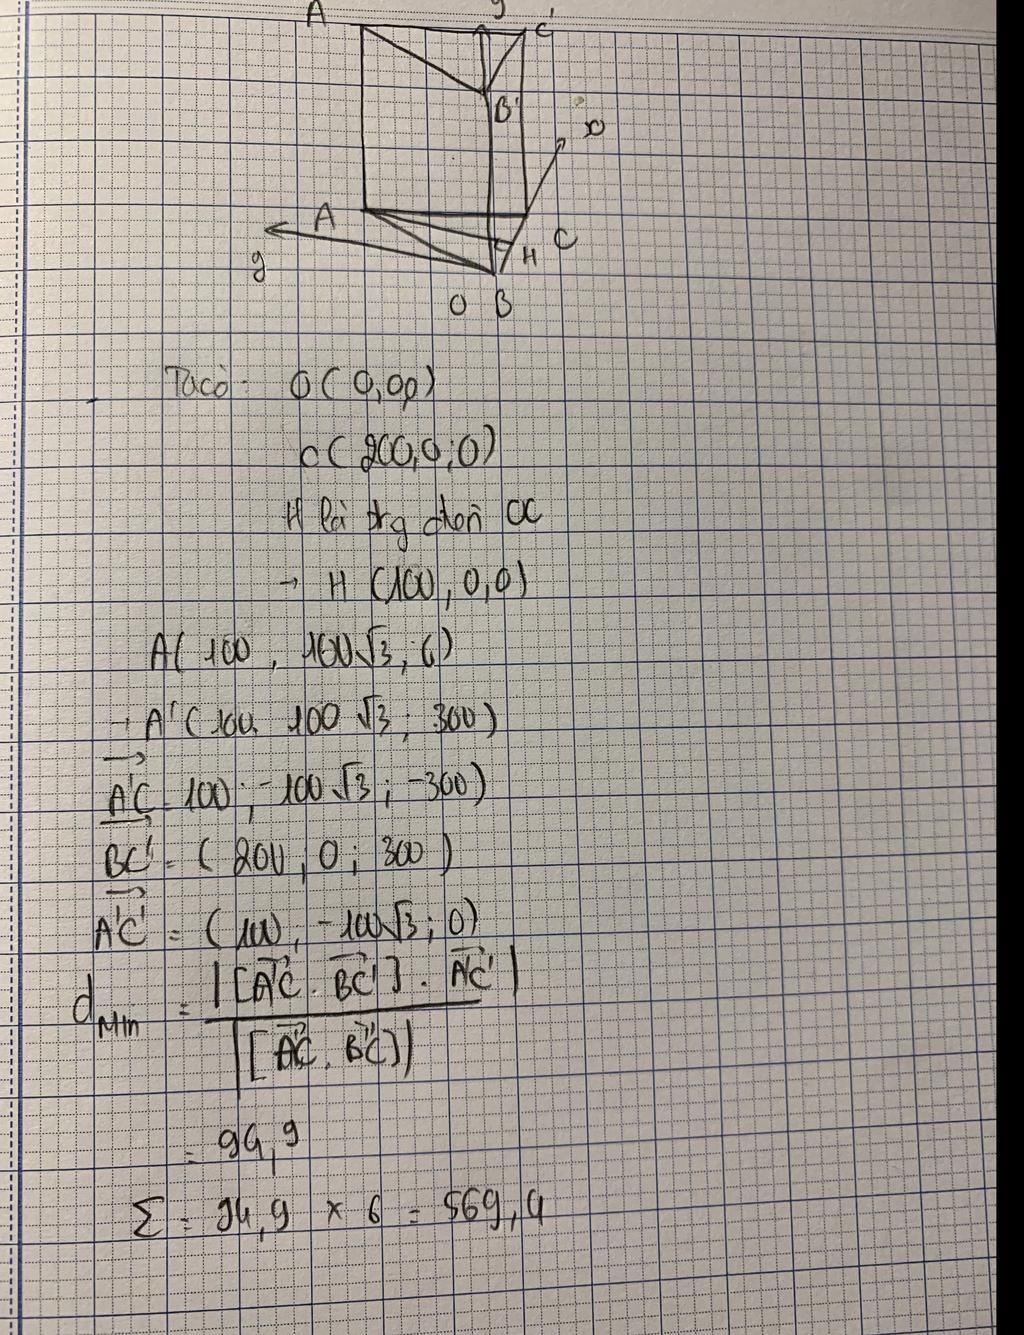 A
y
C'
B'
x
A
C
H
y
O B
Ta có: O(0,0,0)
C(200,0;0)
H là trg điểm OC
→ H (100,0,0)
A(100, 100√3; 0)
→ A'(100, 100√3; 300)
A'C = 100; -100√3; -300)
BC' = (200, 0; 300)
A'C' = (100, -100√3; 0)
dMin = |[A'C . BC'] . A'C'|
|[A'C . BC']|
= 94,9
Σ = 94,9 x 6 = 569,4